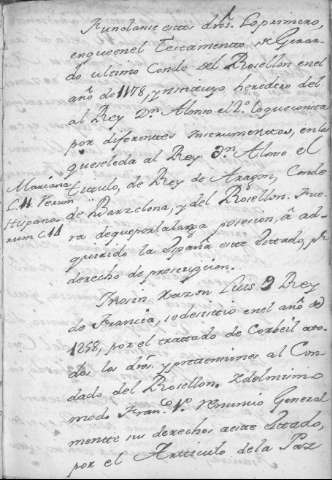 Fundanse estos dros. Lo primero,
en que en el Testamento de Gerar-
do ultimo Conde del Rosellon en el
año de 1178, instituyo heredero del
al Rey Dn. Alonso el 2o. lo que consta
por diferentes instrumentos, en los
que se le da al Rey Dn. Alonso el
titulo, de Rey de Aragon, Conde
de Barzelona, y del Rosellon. Fue-
ra de que por la larga posesion, à ad-
quirido la España este Estado, pr.
derecho de prescripcion.
Mariana
L. 11
Hispana
rum C. 11
razon Luis 9 Rey
de Francia, cedesistio en el año de
1258, por el trattado de Corbeil a to-
dos los dros. y pretensiones al Con-
dado del Rosellon. Y del mismo
modo Fran. 1o. renuncio General
mente sus derechos a este Estado,
por el Articulo de la Paz